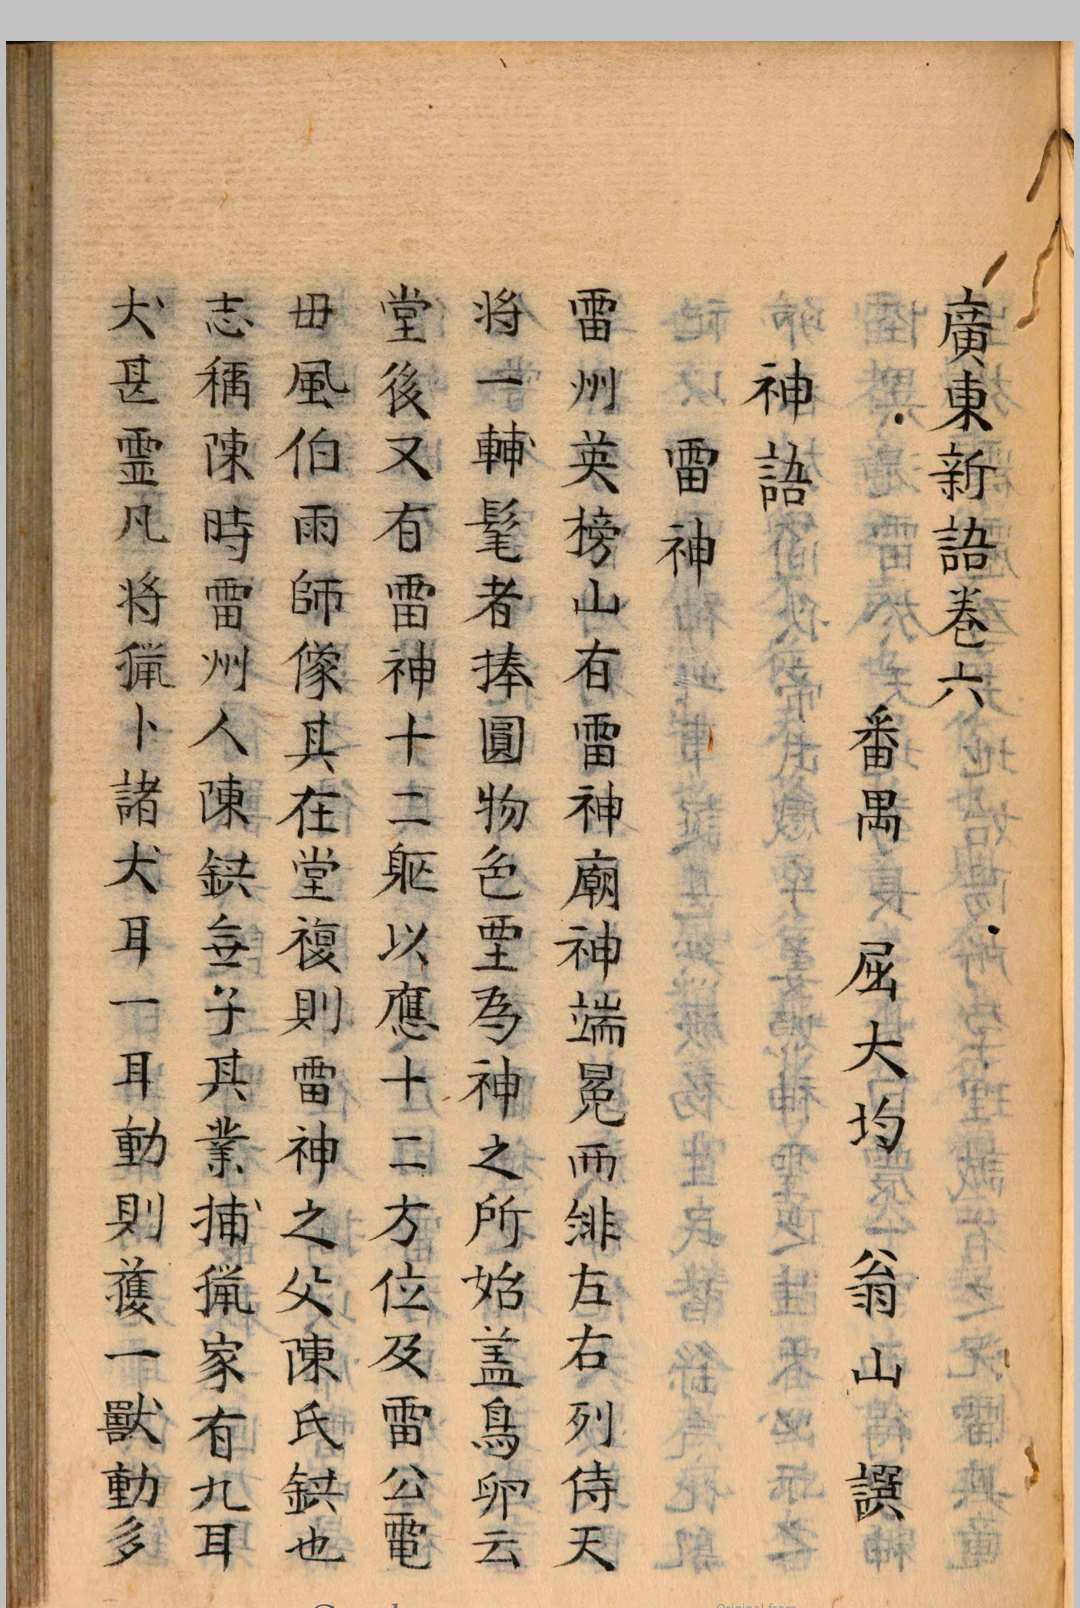 廣東新語卷六
番禺 屈大均 翁山 譔
神語
雷神
雷州英榜山有雷神廟神端冕而緋左右列侍天
将一輔髦者捧圓物色堊為神之所始蓋鳥卵云
堂後又有雷神十二躯以應十二方位及雷公電
毋風伯雨師像其在堂複則雷神之父陳氏鉷也
志稱陳時雷州人陳鉷無子其業捕猟家有九耳
犬甚霊凡将猟卜諸犬耳一耳動則獲一獸動多